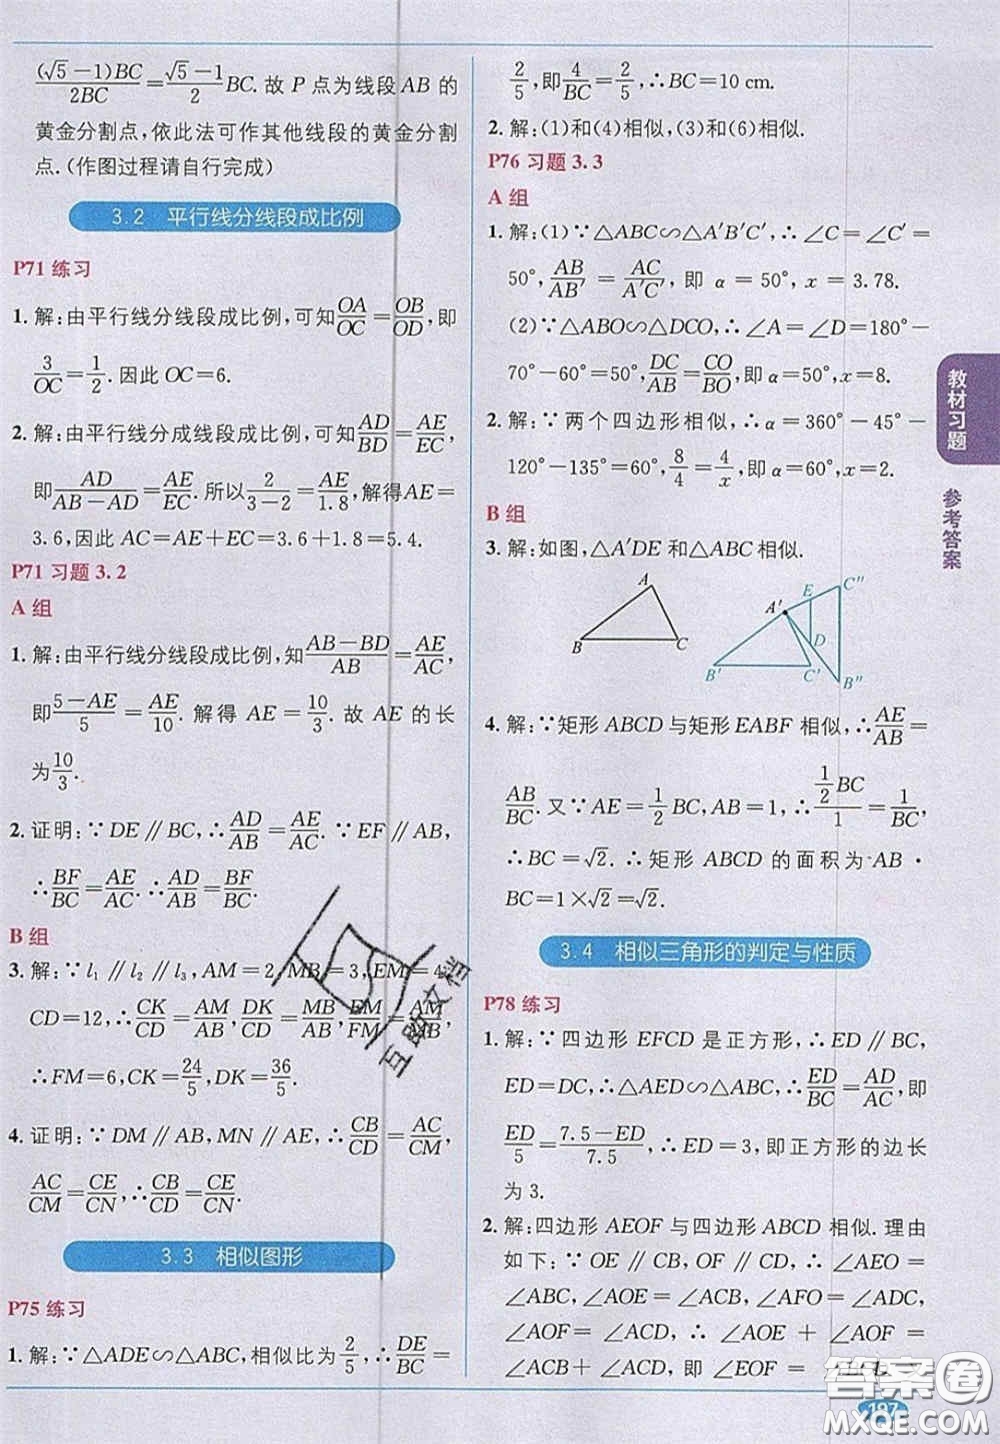 (√5-1)BC/2BC=√5-1/2 BC. 故 P 点为线段 AB 的
黄金分割点,依此法可作其他线段的黄金分割
点.(作图过程请自行完成)
3.2 平行线分线段成比例
P71 练习
1. 解:由平行线分线段成比例,可知OA/OC=OB/OD,即
3/OC=1/2. 因此 OC=6.
2. 解:由平行线分成线段成比例,可知AD/BD=AE/EC,
即AD/AB-AD=AE/EC. 所以2/3-2=AE/1.8,解得AE=
3.6,因此 AC=AE+EC=3.6+1.8=5.4.
P71 习题 3.2
A 组
1. 解:由平行线分线段成比例,知AB-BD/AB=AE/AC,
即5-AE/5=AE/10. 解得 AE=10/3. 故 AE 的长
为10/3.
2. 证明:∵DE∥BC,∴AD/AB=AE/AC. ∵EF∥AB,
∴BF/BC=AE/AC. ∴AD/AB=BF/BC.
B 组
3. 解:∵l₁∥l₂∥l₃,AM=2,MB=3,EM=4,
CD=12,∴CK/CD=AM/AB,DK/CD=MB/AB,MB/FM=AM/EM,
∴FM=6,CK=24/5,DK=36/5.
4. 证明:∵DM∥AB,MN∥AE,∴CB/CD=AC/CM,
AC/CM=CE/CN,∴CB/CD=CE/CN.
3.3 相似图形
P75 练习
1. 解:∵△ADE∽△ABC,相似比为2/5,∴DE/BC=
2/5,即4/BC=2/5,∴BC=10 cm.
2. 解:(1)和(4)相似,(3)和(6)相似.
P76 习题 3.3
A 组
1. 解:(1)∵△ABC∽△A′B′C′,∴∠C=∠C′=
50°,AB/AB′=AC/A′C′,即 α=50°,x=3.78.
(2)∵△ABO∽△DCO,∴∠A=∠D=180°-
70°-60°=50°,DC/AB=CO/BO,即 α=50°,x=8.
2. 解:∵两个四边形相似,∴α=360°-45°-
120°-135°=60°,8/4=4/x,即 α=60°,x=2.
B 组
3. 解:如图,△A′DE 和△ABC 相似.
A
B
C
A′
B′
C′
D
E
C″
B″
4. 解:∵矩形 ABCD 与矩形 EABF 相似,∴AE/AB=
AB/BC. 又∵AE=1/2 BC,AB=1,∴1/2 BC/1=1/BC,
∴BC=√2. ∴矩形 ABCD 的面积为 AB·
BC=1×√2=√2.
3.4 相似三角形的判定与性质
P78 练习
1. 解:∵四边形 EFCD 是正方形,∴ED∥BC,
ED=DC,∴△AED∽△ABC,∴ED/BC=AD/AC,即
ED/5=7.5-ED/7.5,∴ED=3,即正方形的边长
为 3.
2. 解:四边形 AEOF 与四边形 ABCD 相似. 理由
如下:∵OE∥CB,OF∥CD,∴∠AEO=
∠ABC,∠AOE=∠ACB,∠AFO=∠ADC,
∠AOF=∠ACD,∴∠AOE+∠AOF=
∠ACB+∠ACD,即∠EOF=
教材习题
参考答案
互助文档
答案圈
MXQE.COM
197